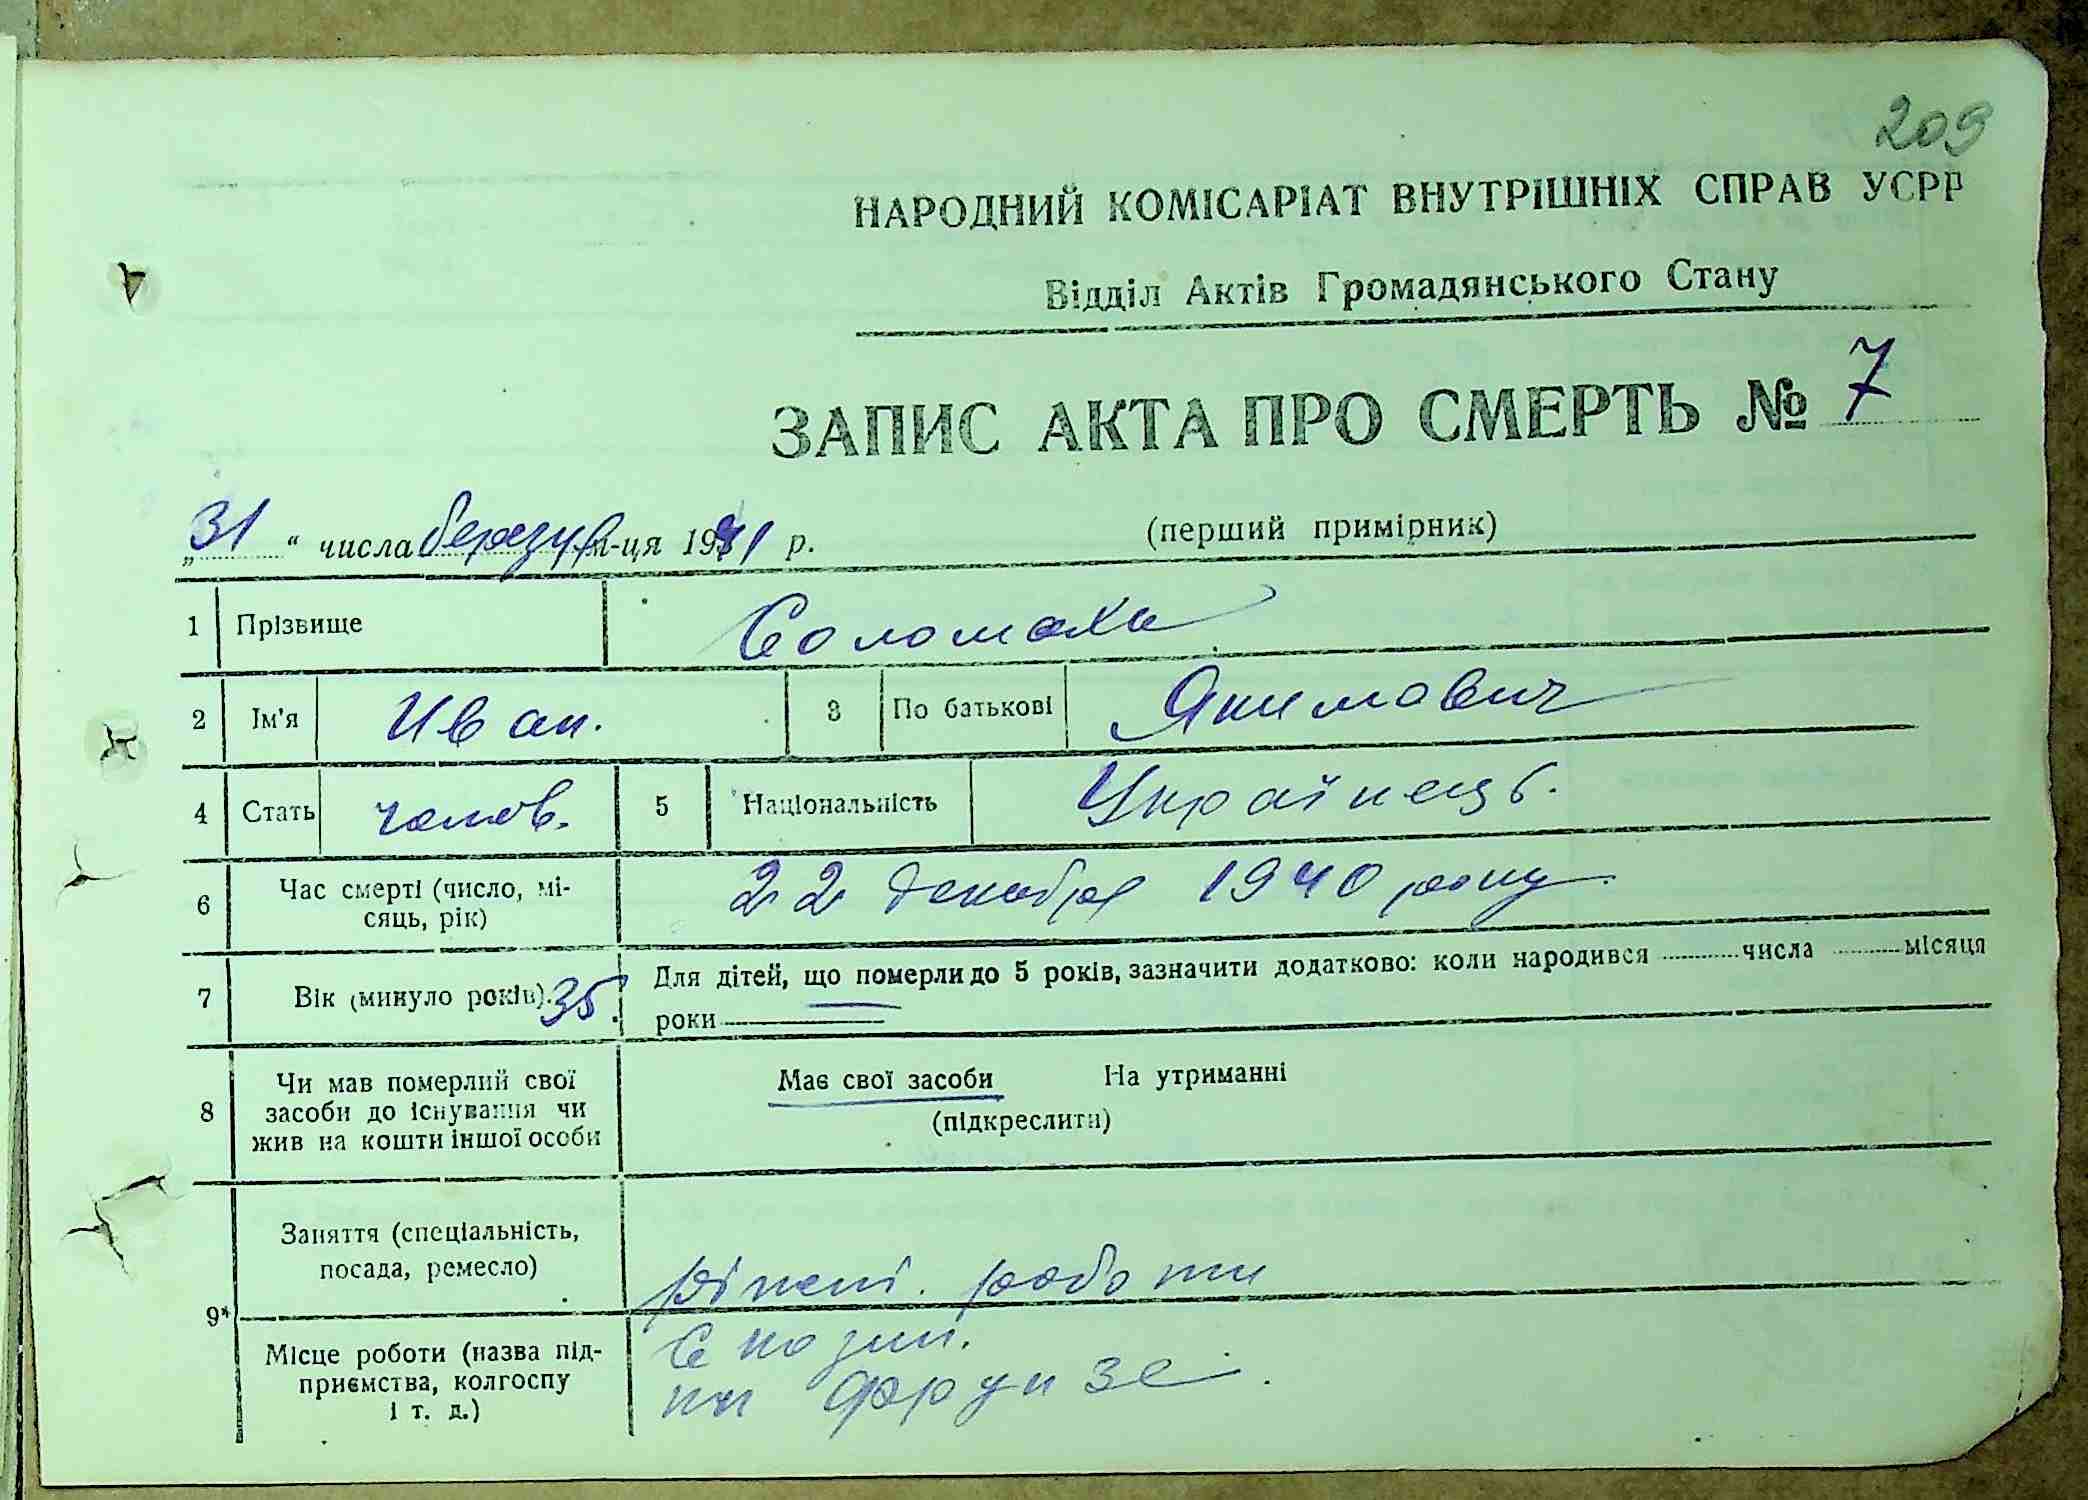 209
НАРОДНИЙ КОМІСАРІАТ ВНУТРІШНІХ СПРАВ УСРР
Відділ Актів Громадянського Стану
ЗАПИС АКТА ПРО СМЕРТЬ № 7
„31“ числа березня м-ця 1941 р.
(перший примірник)
1 Прізвище Соломаха
2 Ім'я Иван. 3 По батькові Якимович
4 Стать чолов. 5 Національність Українець.
6 Час смерті (число, мі-
сяць, рік) 22 декабря 1940 року
7 Вік (минуло років). 35. Для дітей, що померли до 5 років, зазначити додатково: коли народився числа місяця
роки
8 Чи мав померлий свої
засоби до існування чи
жив на кошти іншої особи
Має свої засоби На утриманні
(підкреслити)
9* Заняття (спеціальність,
посада, ремесло) різні. роботи
Місце роботи (назва під-
приємства, колгоспу
і т. д.)
Фрунзе.